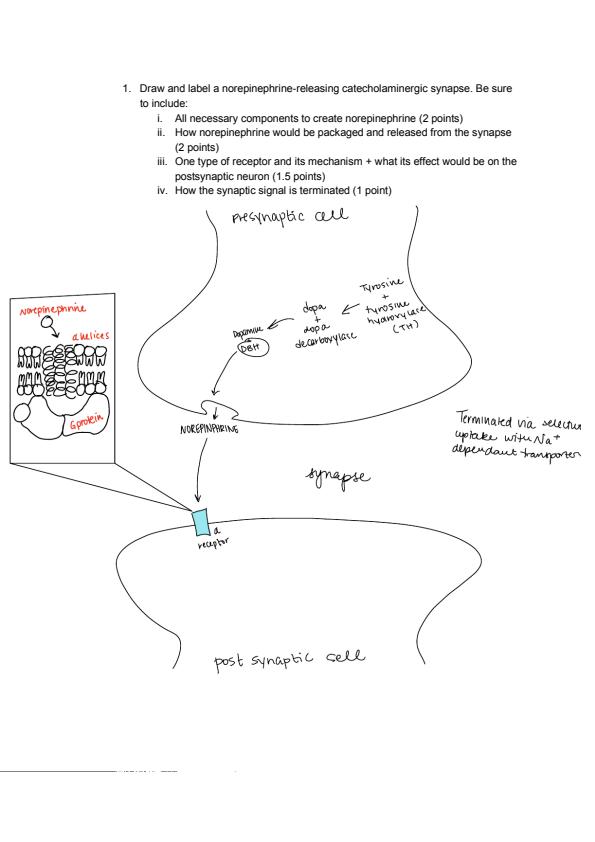 1. Draw and label a norepinephrine-releasing catecholaminergic synapse. Be sure
to include:
i. All necessary components to create norepinephrine (2 points)
ii. How norepinephrine would be packaged and released from the synapse
(2 points)
iii. One type of receptor and its mechanism + what its effect would be on the
postsynaptic neuron (1.5 points)
iv. How the synaptic signal is terminated (1 point)
Presynaptic cell
Tyrosine
+
tyrosine
hydroxylase
(TH)
dopa
+
dopa
decarboxylase
Dopamine
DBH
NOREPINPHRINE
Norepinephrine
α helices
G protein
Terminated via selective
uptake with Na+
dependant transporter
synapse
α
receptor
post synaptic cell